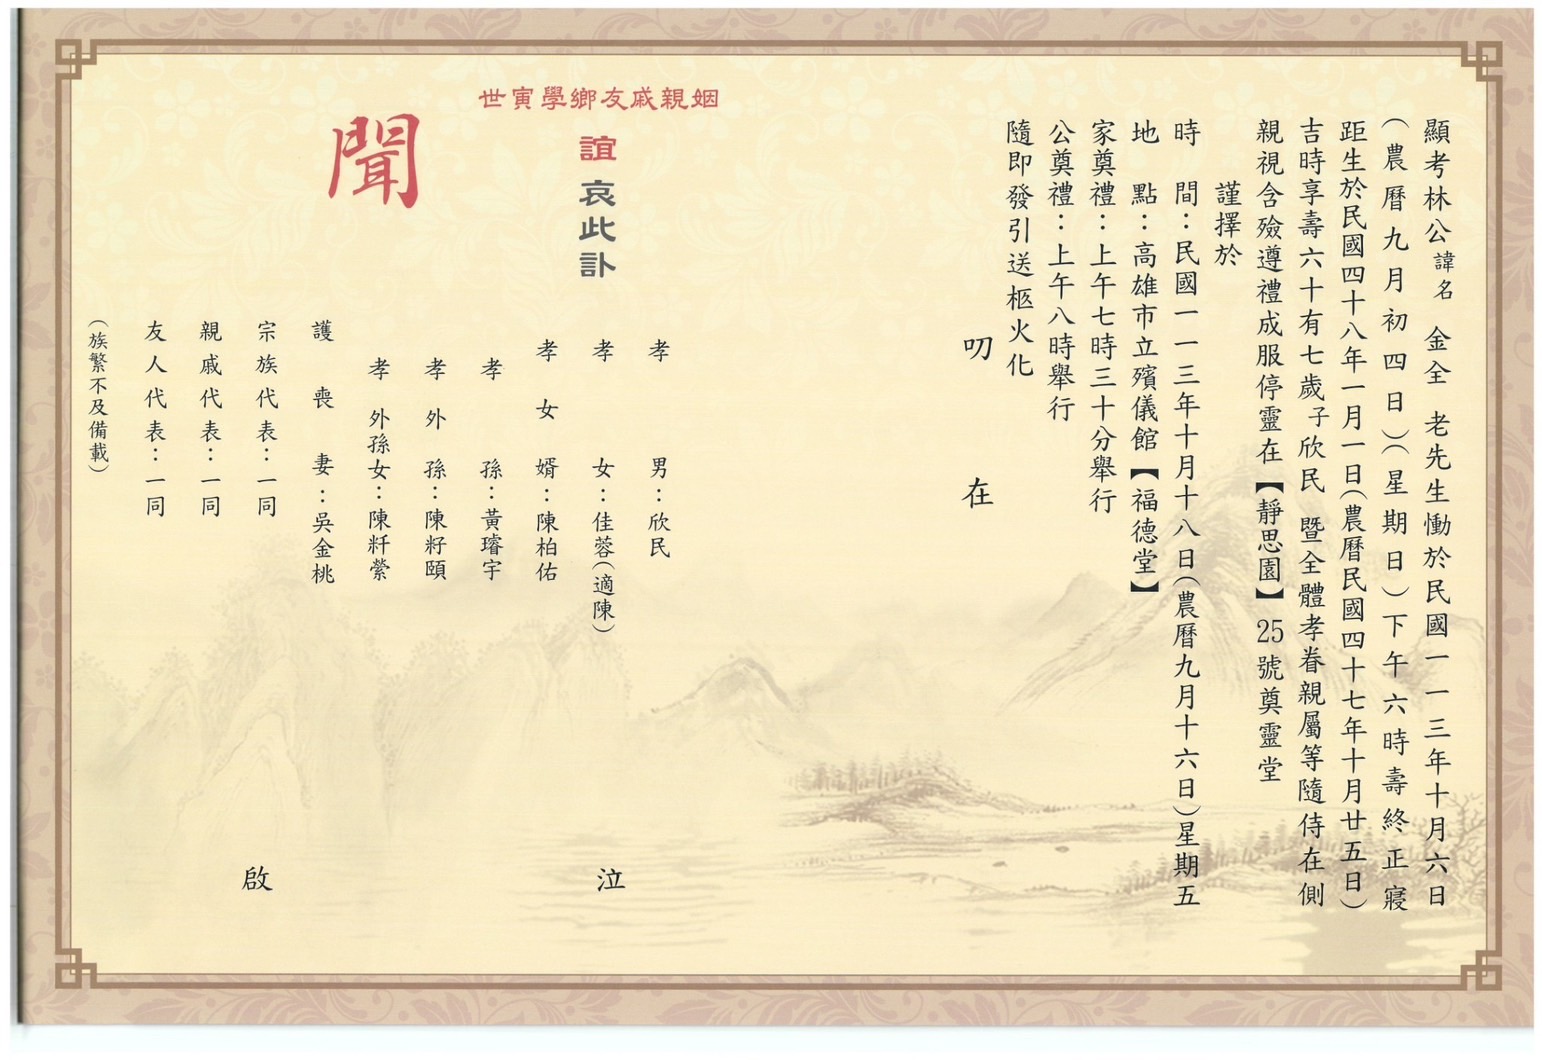 顯考林公諱名金全老先生慟於民國一一三年十月六日
(農曆九月初四日)(星期日)下午六時壽終正寢
距生於民國四十八年一月一日(農曆民國四十七年十月廿五日)
吉時享壽六十有七歲子欣民暨全體孝眷親屬等隨侍在側
親視含殮遵禮成服停靈在【靜思園】25號奠靈堂
謹擇於
時間：民國一一三年十月十八日(農曆九月十六日)星期五
地點：高雄市立殯儀館【福德堂】
家奠禮：上午七時三十分舉行
公奠禮：上午八時舉行
隨即發引送柩火化
叨在
姻親戚友鄉學寅世
誼哀此訃
聞
孝男：欣民
孝女：佳蓉(適陳)
孝女婿：陳柏佑
孝孫：黃璿宇
孝外孫：陳籽頤
孝外孫女：陳粁縈
護喪妻：吳金桃
泣
宗族代表：一同
親戚代表：一同
友人代表：一同
啟
(族繁不及備載)